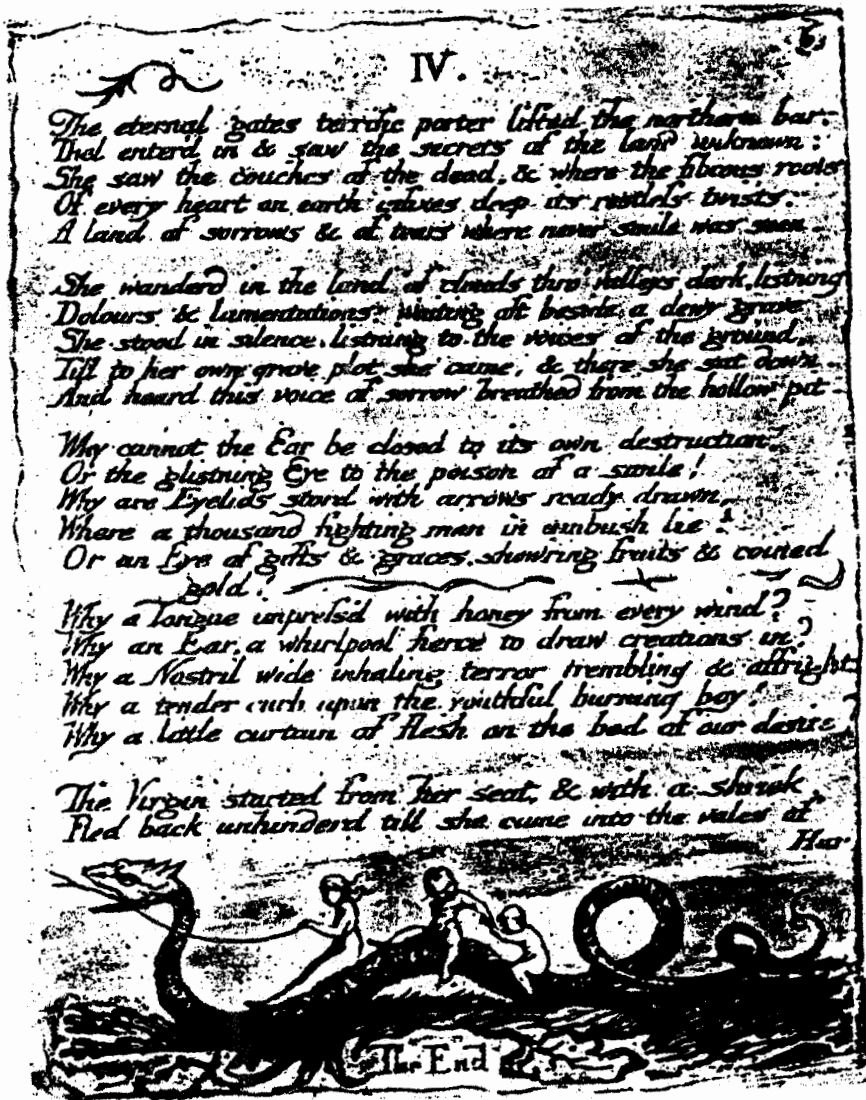 6
IV.
The eternal gates terrific porter lifted the northern bar:
Thel enterd in & saw the secrets of the land unknown:
She saw the couches of the dead, & where the fibrous roots
Of every heart on earth infixes deep its restless twists:
A land of sorrows & of tears where never smile was seen.
She wanderd in the land of clouds thro' valleys dark, listning
Dolours & lamentations: waiting oft beside a dewy grave
She stood in silence, listning to the voices of the ground,
Till to her own grave plot she came, & there she sat down.
And heard this voice of sorrow breathed from the hollow pit
Why cannot the Ear be closed to its own destruction?
Or the glistning Eye to the poison of a smile!
Why are Eyelids stord with arrows ready drawn,
Where a thousand fighting men in ambush lie?
Or an Eye of gifts & graces, show'ring fruits & coined
gold!
Why a Tongue impress'd with honey from every wind?
Why an Ear, a whirlpool fierce to draw creations in?
Why a Nostril wide inhaling terror trembling & affright
Why a tender curb upon the youthful burning boy!
Why a little curtain of flesh on the bed of our desire?
The Virgin started from her seat, & with a shriek,
Fled back unhinderd till she came into the vales of
Har
The End